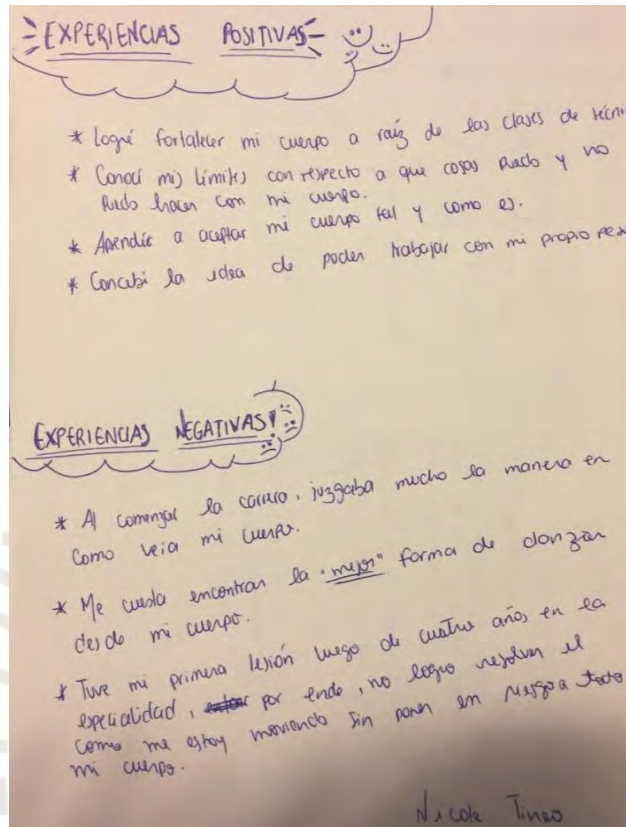 EXPERIENCIAS POSITIVAS
* Logré fortalecer mi cuerpo a raíz de las clases de técni
* Conocí mis límites con respecto a que cosas puedo y no
puedo hacer con mi cuerpo.
* Aprendíe a aceptar mi cuerpo tal y como es.
* Concebi la idea de poder trabajar con mi propio peso
EXPERIENCIAS NEGATIVAS!
* Al comenzar la carrera, juzgaba mucho la manera en
como veía mi cuerpo.
* Me cuesta encontrar la "mejor" forma de danzar
desde mi cuerpo.
* Tuve mi primera lesión luego de cuatro años en la
especialidad, por ende, no logro resolver el
como me estoy moviendo sin poner en riesgo a todo
mi cuerpo.
Nicole Tineo